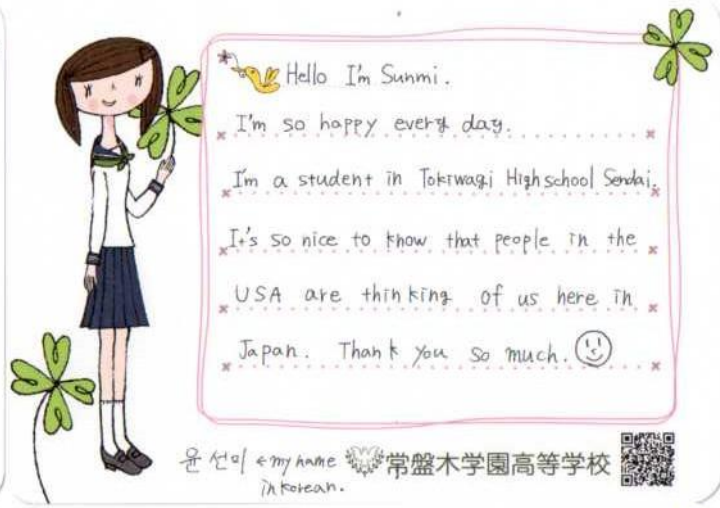 Hello I'm Sunmi.
I'm so happy every day.
I'm a student in Tokiwagi High school Sendai.
It's so nice to know that people in the
USA are thinking of us here in
Japan. Thank you so much.
윤선미 ← my name
in korean.
常盤木学園高等学校